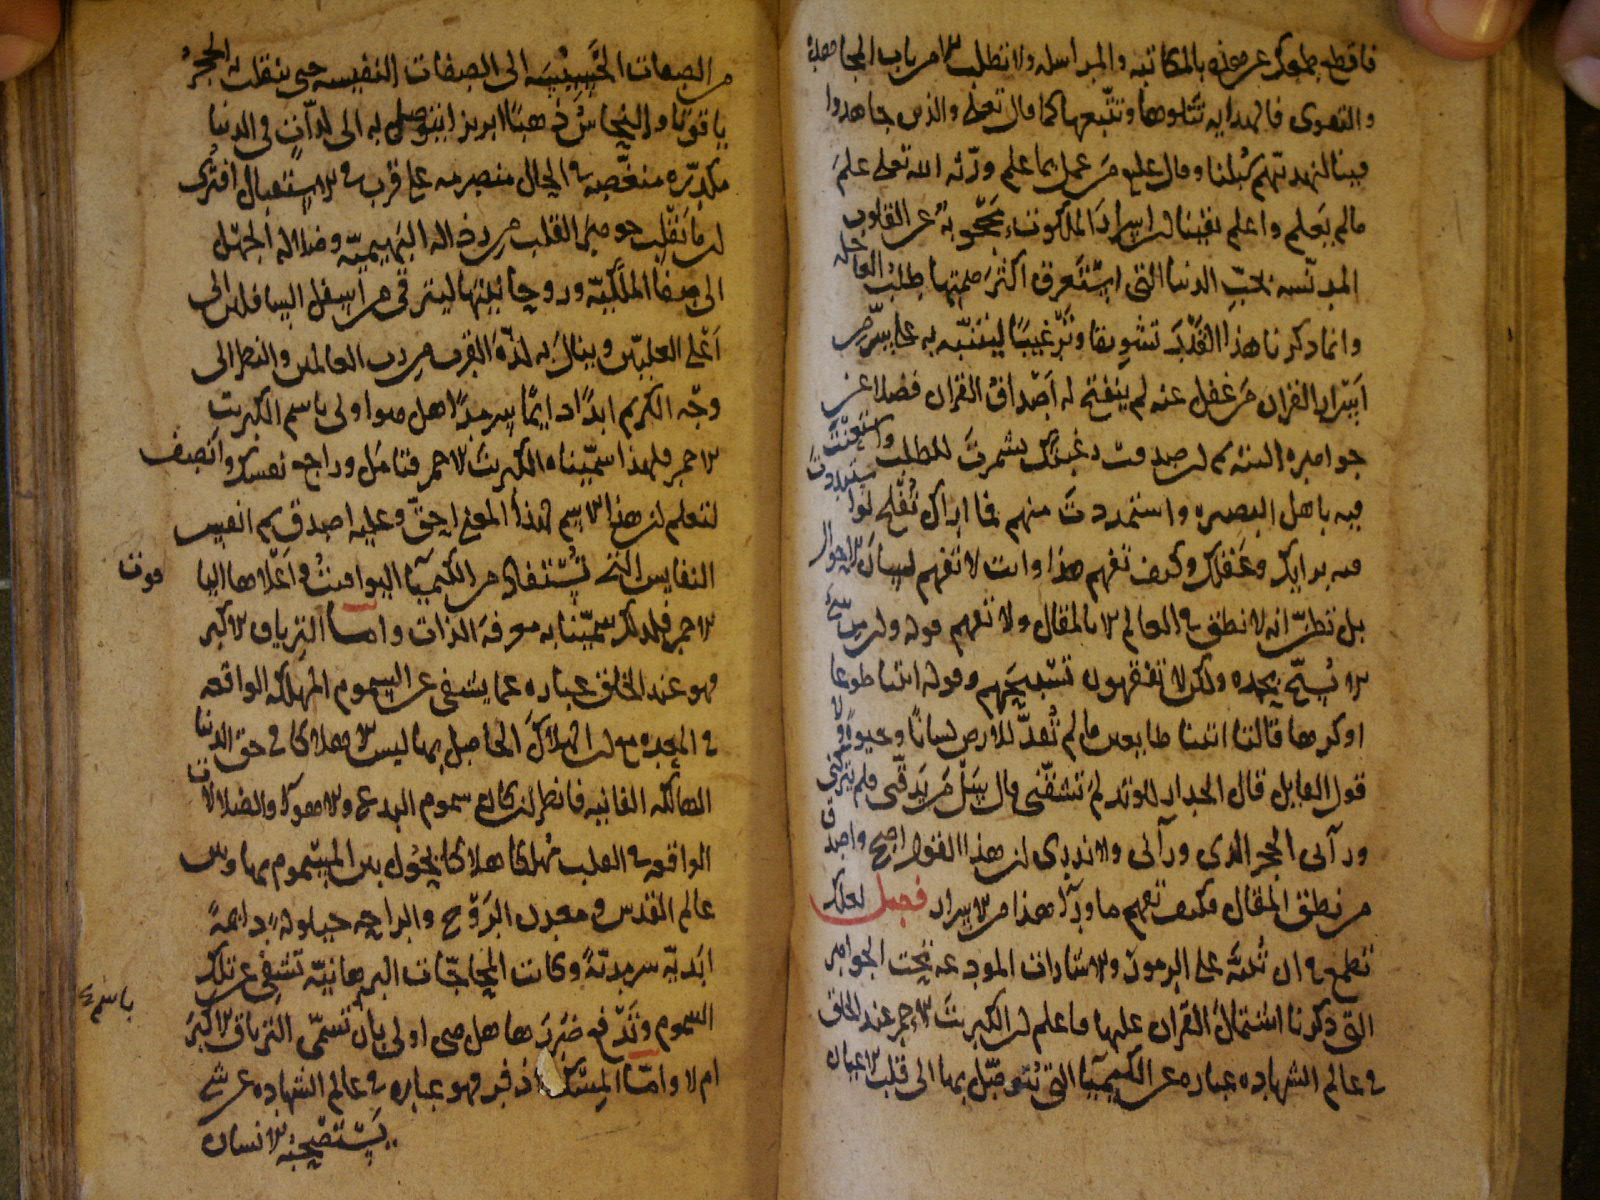 فاقطع طمعك عن هذه بالمكاتبة والمراسلة ولا تطلب الا من باب المجاهدة
والتقوى فالهداية تتلوها وتثبتها كما قال تعالى والذين جاهدوا
فينا لنهدينهم سبلنا وقال عليه من عمل بما علم ورثه الله تعالى علم
ما لم يعلم واعلم يقينا ان اسرار الملكوت محجوبة عن القلوب
المدنسة بحب الدنيا التي استغرق اكثر همتها طلب العاجلة
وانما ذكرنا هذا القدر تشويقا وترغيبا لينتبه به على سر من
اسرار القران من غفل عنه لم ينفتح له اصداف القران فضلا عن
جواهره البتة ثم ان صدقت رغبتك شمرت للطلب واستعنت
فيه باهل البصيرة واستمددت منهم فما اراك تفلح لو استبددت
فيه برايك وعقلك وكيف تفهم هذا وانت لا تفهم لسان الاحوال
بل تظن انه لا نطق في العالم الا بالمقال ولا تفهم قوله وان من شيء
الا يسبح بحمده ولكن لا تفقهون تسبيحهم وقوله ائتيا طوعا
او كرها قالتا اتينا طايعين ما لم تقدر للارض لسانا وحيوة ولا
قول القايل قال الجدار للوتد لم تشقني قال سل من يدقني فلم يتركني
ورآئي الحجر الذي ورآئي ولا تدري ان هذا القول اصح واصدق
من نطق المقال فكيف تفهم ما ورآ هذا من الاسرار فصل لعلك
تطمع في ان تنبه على الرموز والاشارات المودعة تحت الجواهر
التي ذكرنا اشتمال القران عليها فاعلم ان الكبريت الاحمر عند الخلق
في عالم الشهادة عبارة عن الكيميآ التي يتوصل بها الى قلب الاعيان
من الصفات الخسيسة الى الصفات النفيسة حتى ينقلب به الحجر
ياقوتا والنحاس ذهبا ابريزا ليتوصل به الى لذات في الدنيا
مكدرة منغصة في الحال منصرمة على قرب في الاستقبال افترى
ان ما تقلب جواهر القلب من رذالة البهيمية وضلالة الجهل
الى صفا الملكية وروحانيتها ليترقى من اسفل السافلين الى
اعلى العليين وينال به لذة القرب من رب العالمين والنظر الى
وجهه الكريم ابدا دايما سرمدا هل هو اولى باسم الكبريت
الاحمر فلهذا سميناه الكبريت الاحمر فتامل وراجع نفسك وانصف
لتعلم ان هذا الاسم لهذا المعنى احق وعليه اصدق ثم انفس
النفايس التي تستفاد من الكيميآ اليواقيت واعلاها اليا
قوت
الاحمر فلذلك سمينا به معرفة الذات واما الترياق الاكبر
فهو عند الخلق عبارة عما يشفى عن السموم المهلكة الواقعة
في المعدة مع ان الهلاك الحاصل بها ليس الا هلاكا في حق الدنيا
الهالكة الفانية فانظر ان كان سموم البدع والاهوآ والضلالات
الواقعة في القلب مهلكا هلاكا يحول بين المسموم بها وبين
عالم القدس ومعدن الروح والراحة حيلولة دايمة
ابدية سرمدية وكانت المحاجات البرهانية تشفى عن تلك
السموم وتدفع ضررها هل هي اولى بان تسمى الترياق الاكبر
باسم
ام لا واما المسك الاذفر فهو عبارة في عالم الشهادة عن شي
يستصحبه الانسان